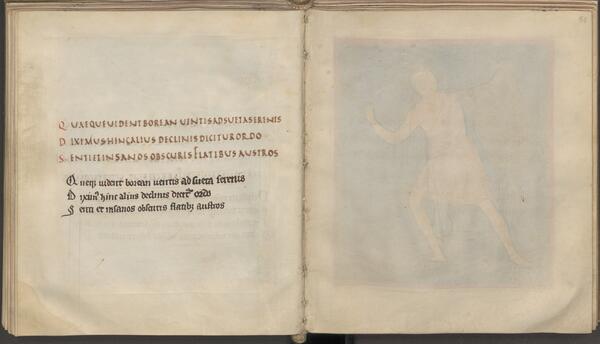 QUAEQUEUIDENTBOREANUENTISADSUETASERENIS
DIXIMUSHINCALIUSDECLINISDICITURORDO
SENTIETINSANOSOBSCURISFLATIBUSAUSTROS
Queq; uident borean uentis adsueta serenis
Diximꝰ hinc alius declinis dicitʳ ordo
Senti et insanos obscuris flatibꝫ austros